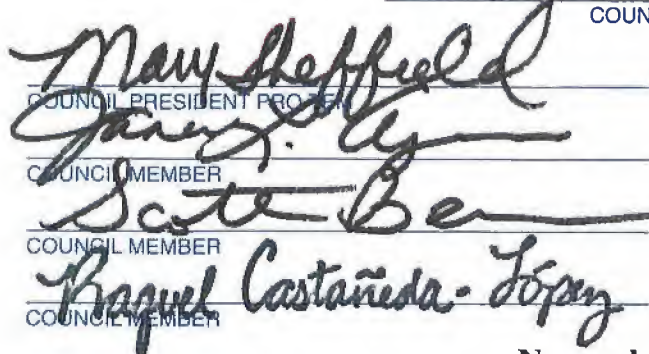 COUN
Mary Sheffield
COUNCIL PRESIDENT PRO TEM
Janeé L. Ayers
COUNCIL MEMBER
Scott Ben
COUNCIL MEMBER
Raquel Castañeda-López
COUNCIL MEMBER